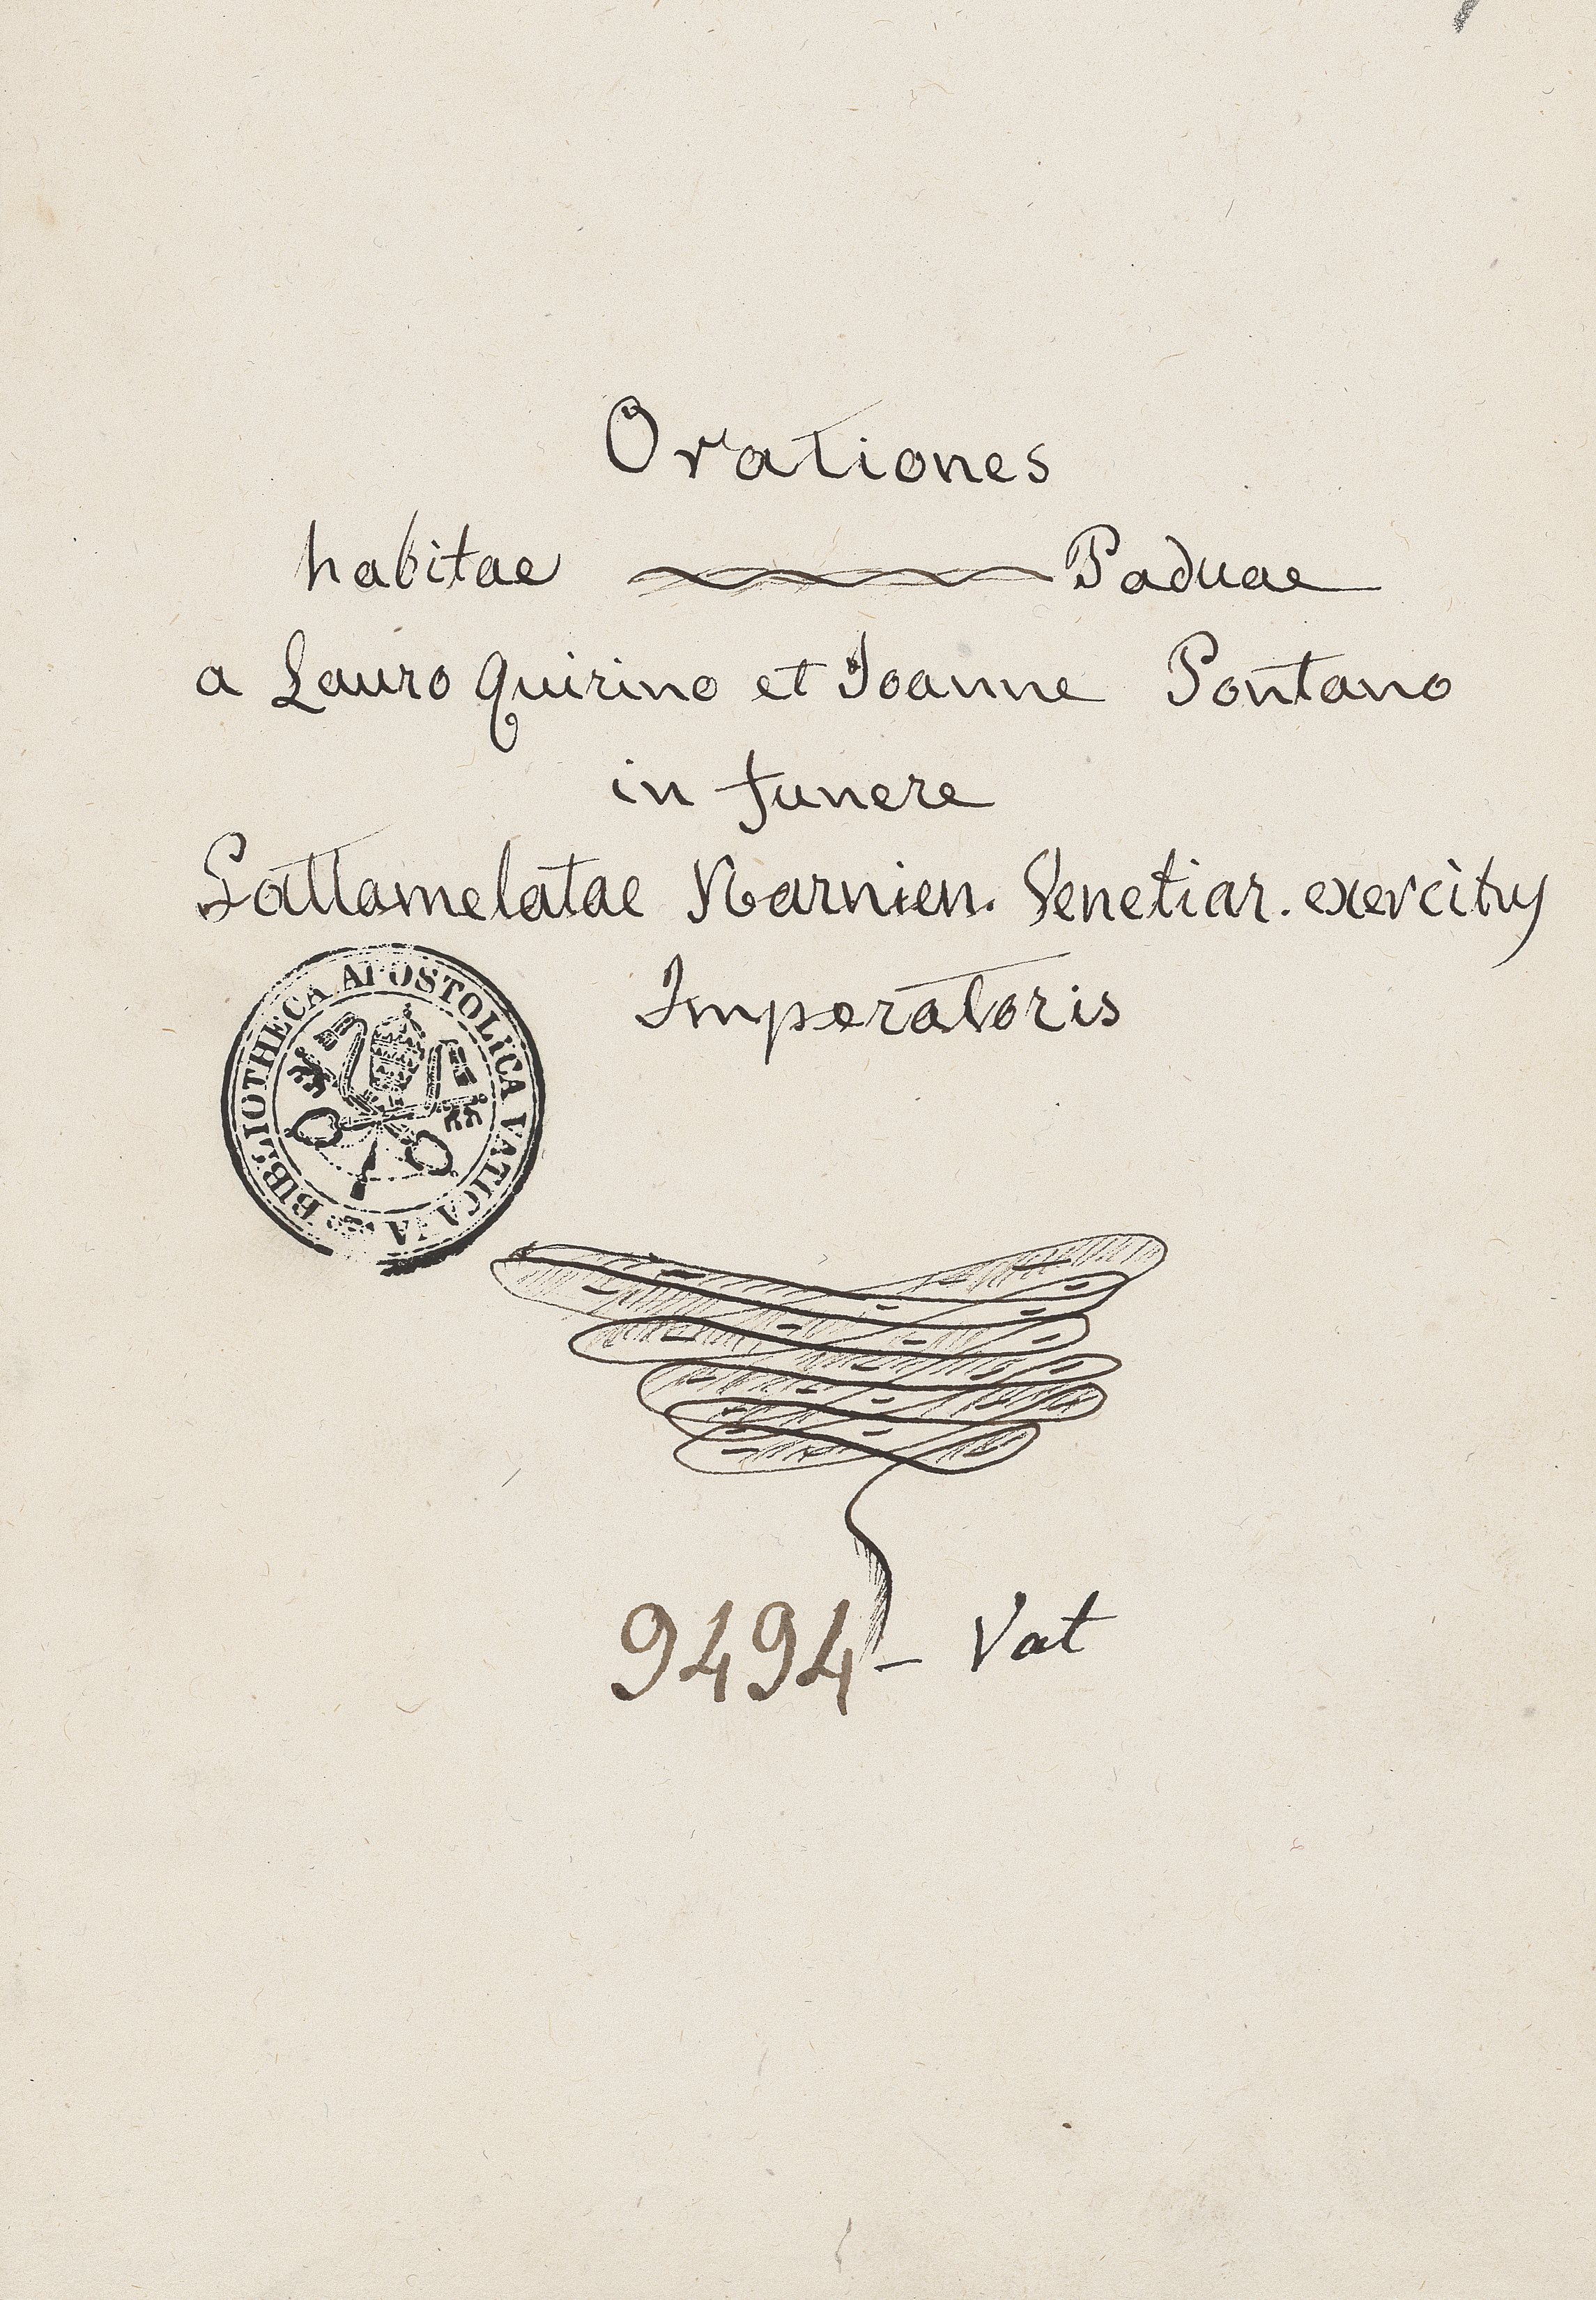 Orationes
habitae Paduae
a Lauro Quirino et Joanne Pontano
in funere
Gattamelatae Narnien. Venetiar. exercitus
Imperatoris
BIBLIOTHECA APOSTOLICA VATICANA
9494 - Vat